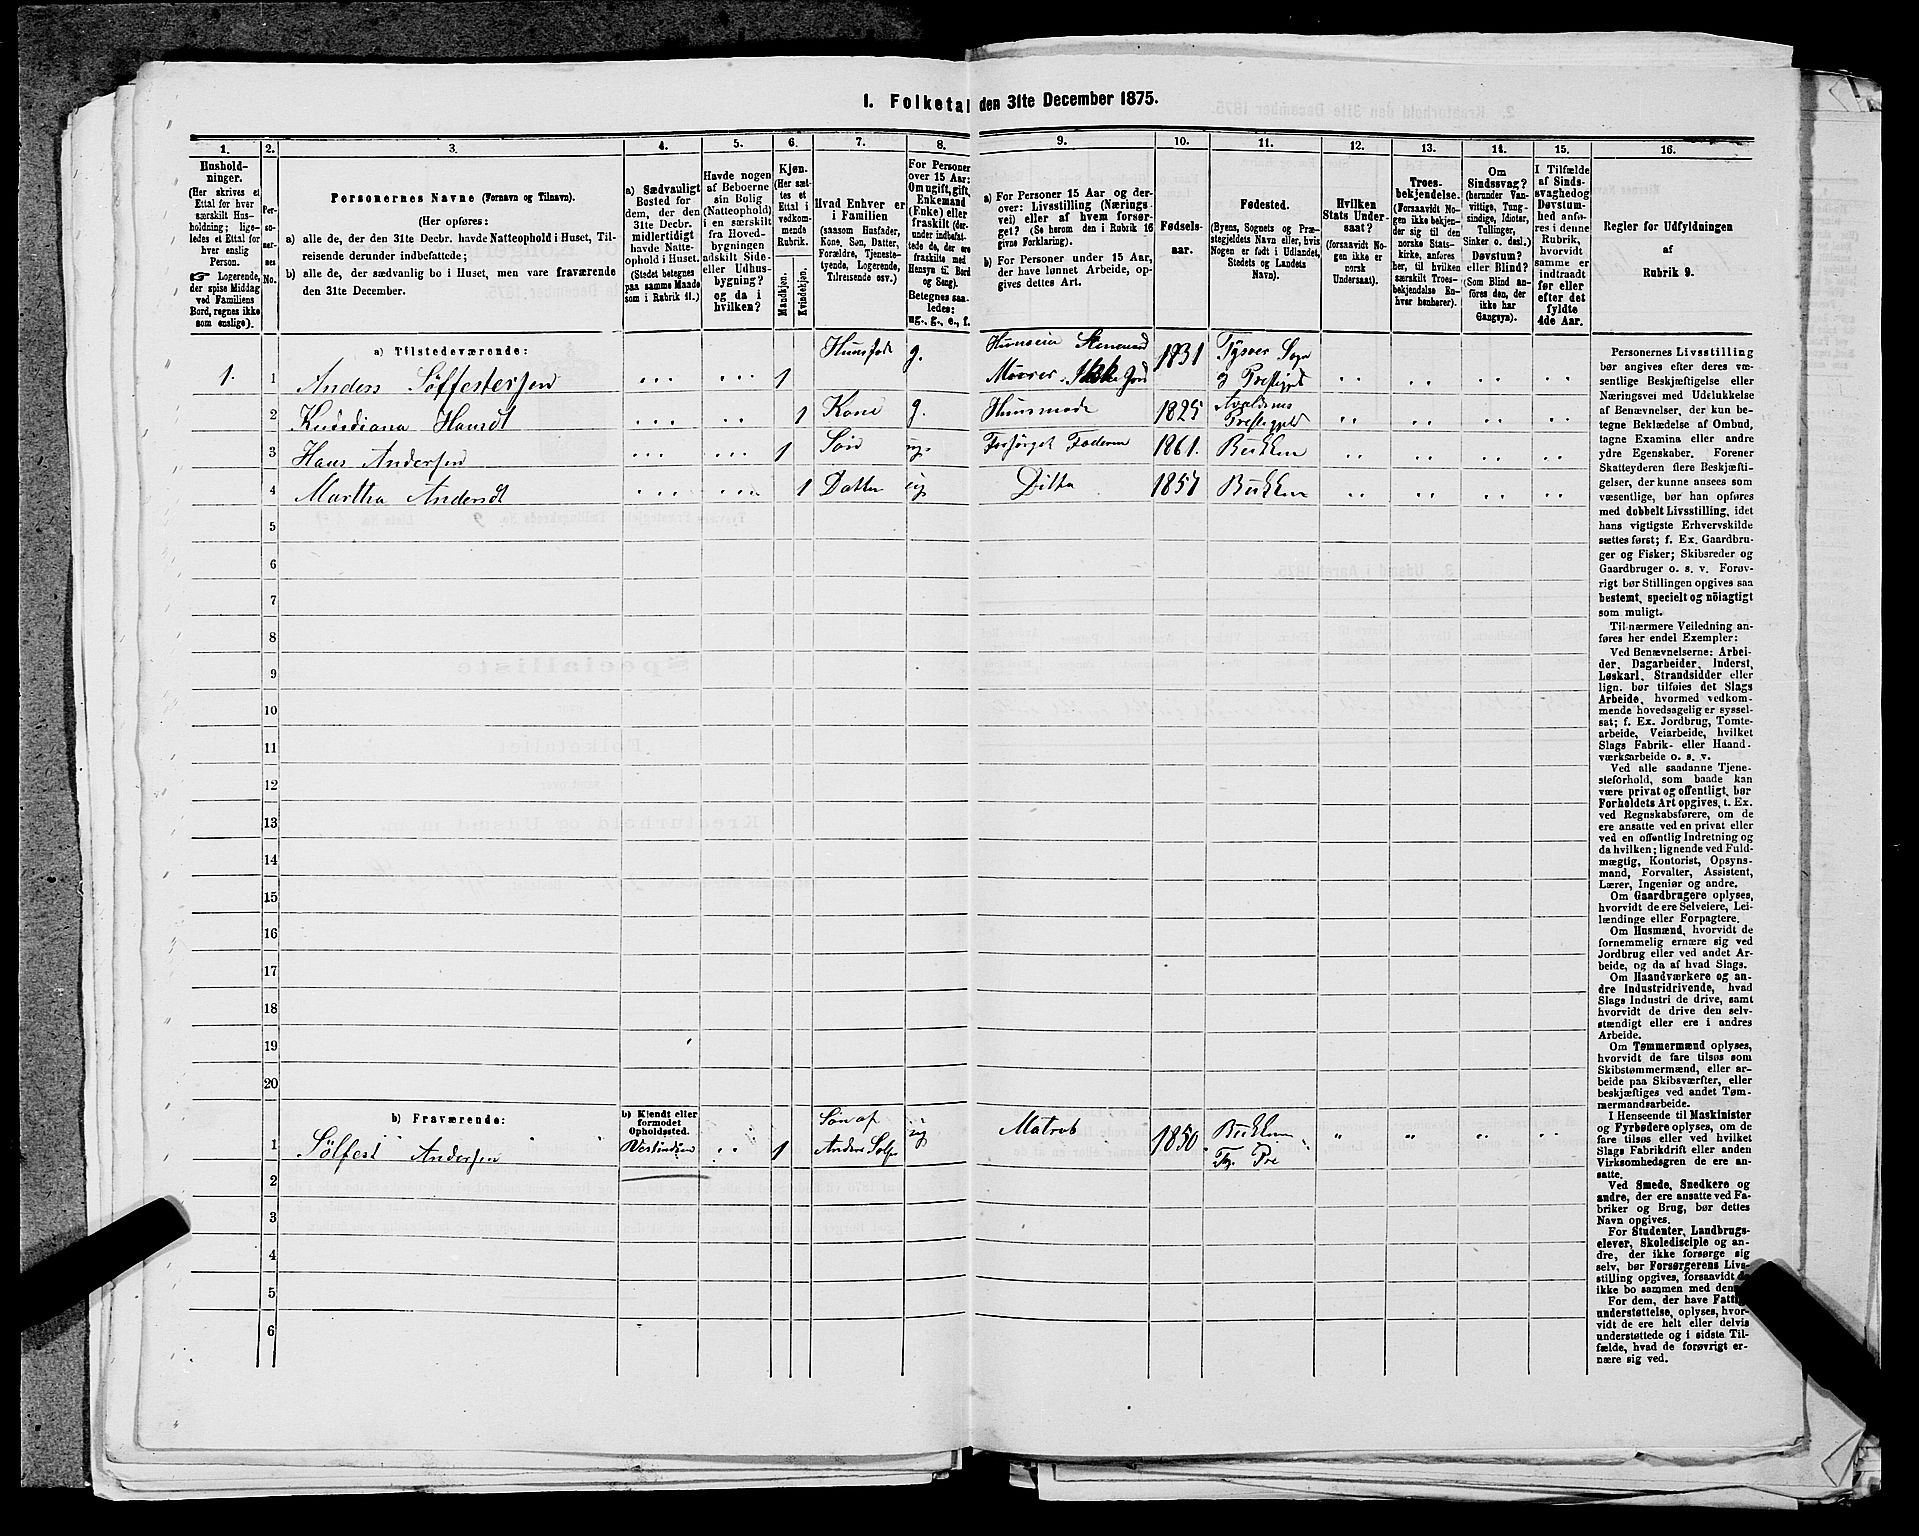 1. Folketal den 31te December 1875.
1.
Husholdninger.
(Her skrives et
Ettal for hver
særskilt Husholdning;
ligeledes et Ettal for
hver enslig
Person.
☞ Logerende,
der spise Middag
ved Familiens
Bord, regnes ikke
som enslige).
2.
Personernes No.
3.
Personernes Navne (Fornavn og Tilnavn).
(Her opføres:
a) alle de, der den 31te Decbr. havde Natteophold i Huset, Tilreisende derunder indbefattede;
b) alle de, der sædvanlig bo i Huset, men vare fraværende
den 31te December.
4.
a) Sædvanligt
Bosted for
dem, der den
31te Decbr.
midlertidigt
havde Natteophold i Huset.
(Stedet betegnes
paa samme Maade
som i Rubrik 11.)
5.
Havde nogen
af Beboerne
sin Bolig
(Natteophold)
i en særskilt
fra Hovedbygningen
adskilt Side-
eller Udhusbygning?
og da i
hvilken?
6.
Kjøn.
(Her sættes et
Ettal i
vedkommende
Rubrik.
Mandkjøn.
Kvindekjøn.
7.
Hvad Enhver er
i Familien
(saasom Husfader,
Kone, Søn, Datter,
Forældre, Tjenestetyende, Logerende,
Tilreisende osv.)
8.
For Personer
over 15 Aar:
Om ugift, gift,
Enkemand
(Enke) eller
fraskilt (derunder indbefattede de, der ere
fraskilte med
Hensyn til Bord
og Seng).
Betegnes saaledes:
ug., g., e., f.
9.
a) For Personer 15 Aar og derover: Livsstilling (Næringsvei) eller af hvem forsørget? (Se herom den i Rubrik 16
givne Forklaring).
b) For Personer under 15 Aar,
der have lønnet Arbeide, opgives dettes Art.
10.
Fødselsaar.
11.
Fødested.
(Byens, Sognets og Præstegjeldets Navn eller, hvis
Nogen er født i Udlandet,
Stedets og Landets
Navn).
12.
Hvilken
Stats Undersaat?
(forsaavidt Nogen ikke er
norsk
Undersaat).
13.
Troesbekjendelse.
(Forsaavidt Nogen ikke bekjender sig til den
norske Statskirke, anføres
her, til hvilken
særskilt Troesbekjendelse Enhver henhører).
14.
Om
Sindssvag?
(herunder Vanvittige, Tungsindige, Idioter,
Tullinger,
Sinker o. desl.)
Døvstum?
eller Blind?
(Som Blind anføres den, der
ikke har
Gangsyn).
15.
I Tilfælde
af Sindssvaghed og
Døvstumhed anføres i denne
Rubrik,
hvorvidt
samme er
indtraadt
før eller
efter det
fyldte
4de Aar.
16.
Regler for Udfyldningen
af
Rubrik 9.
a) Tilstedeværende:
1. 1 Anders Söffestersen 1 Huusfade g. Huuseier Stenwand Murer Ikke Jord 1831 Tysver Sogn og Prestigjel
2 Hansdt 1 Kone g. Huusmode 1825 Avaldsnes Prestigjeld
3 Hans Andersen 1 Søn ug. Forsörget Faderen 1861. Bukken
4 Martha Andersdt 1 Datter ug Ditto 1857 Bukken
5
6
7
8
9
10
11
12
13
14
15
16
17
18
19
20
b) Fraværende:
b) Kjendt eller
formodet
Opholdssted.
1 Sölfest Andersen Vestindien 1 Søn af Anders ug Matros 1850 Bukken
2
3
4
5
6
Personernes Livsstilling
bør angives efter deres væsentlige Beskjæftigelse eller
Næringsvei med Udelukkelse
af Benævnelser, der kun betegne Beklædelse af Ombud,
tagne Examina eller andre
ydre Egenskaber. Forener
Skatteyderen flere Beskjæftigelser, der kunne ansees som
væsentlige, bør han opføres
med dobbelt Livsstilling, idet
hans vigtigste Erhvervskilde
sættes først; f. Ex. Gaardbruger og Fisker; Skibsreder og
Gaardbruger o. s. v. Forøvrigt bør Stillingen opgives saa
bestemt, specielt og nöiagtigt
som muligt.
Til nærmere Veiledning anføres her endel Exempler:
Ved Benævnelserne: Arbeider, Dagarbeider, Inderst,
Løskarl, Strandsidder eller
lign. bør tilføies det Slags
Arbeide, hvormed vedkommende hovedsagelig er sysselsat; f. Ex. Jordbrug, Tomtearbeide, Veiarbeide, hvilket
Slags Fabrik- eller Haandværksarbeide o. s. v.
Ved alle saadanne Tjenesteforhold, som baade kan
være privat og offentligt, bør
Forholdets Art opgives, t. Ex.
ved Regnskabsførere, om de
ere ansatte ved en privat eller
ved en offentlig Indretning og
da hvilken; lignende ved Fuldmægtig, Kontorist, Opsynsmand, Forvalter, Assistent,
Lærer, Ingeniør og andre.
Om Gaardbrugere oplyses,
hvorvidt de ere Selveiere, Leilændinge eller Forpagtere.
Om Husmænd, hvorvidt de
fornemmelig ernære sig ved
Jordbrug eller ved andet Arbeide, og da af hvad Slags.
Om Haandværkere og andre Industridrivende, hvad
Slags Industri de drive, samt
hvorvidt de drive den selvstændigt eller ere i andres
Arbeide.
Om Tømmermænd oplyses,
hvorvidt de fare tilsøs som
Skibstømmermænd, eller arbeide paa Skibsværfter, eller
beskjæftiges ved andet Tømmermandsarbeide.
I Henseende til Maskinister
og Fyrbødere oplyses, om de
fare tilsøs eller ved hvilket
Slags Fabrikdrift eller anden
Virksomhedsgren de ere ansatte.
Ved Smede, Snedkere og
andre, der ere ansatte ved Fabriker og Brug, bør dettes
Navn opgives.
For Studenter, Landbrugselever, Skoledisciple og andre, der ikke forsørge sig
selv, bør Forsørgerens Livsstilling opgives, forsaavidt de
ikke bo sammen med
For dem, der have
understøttelse, oplyses, hvorvidt de ere helt eller delvis
understøttede og i sidste Tilfælde, hvad de forøvrigt ernære sig ved.